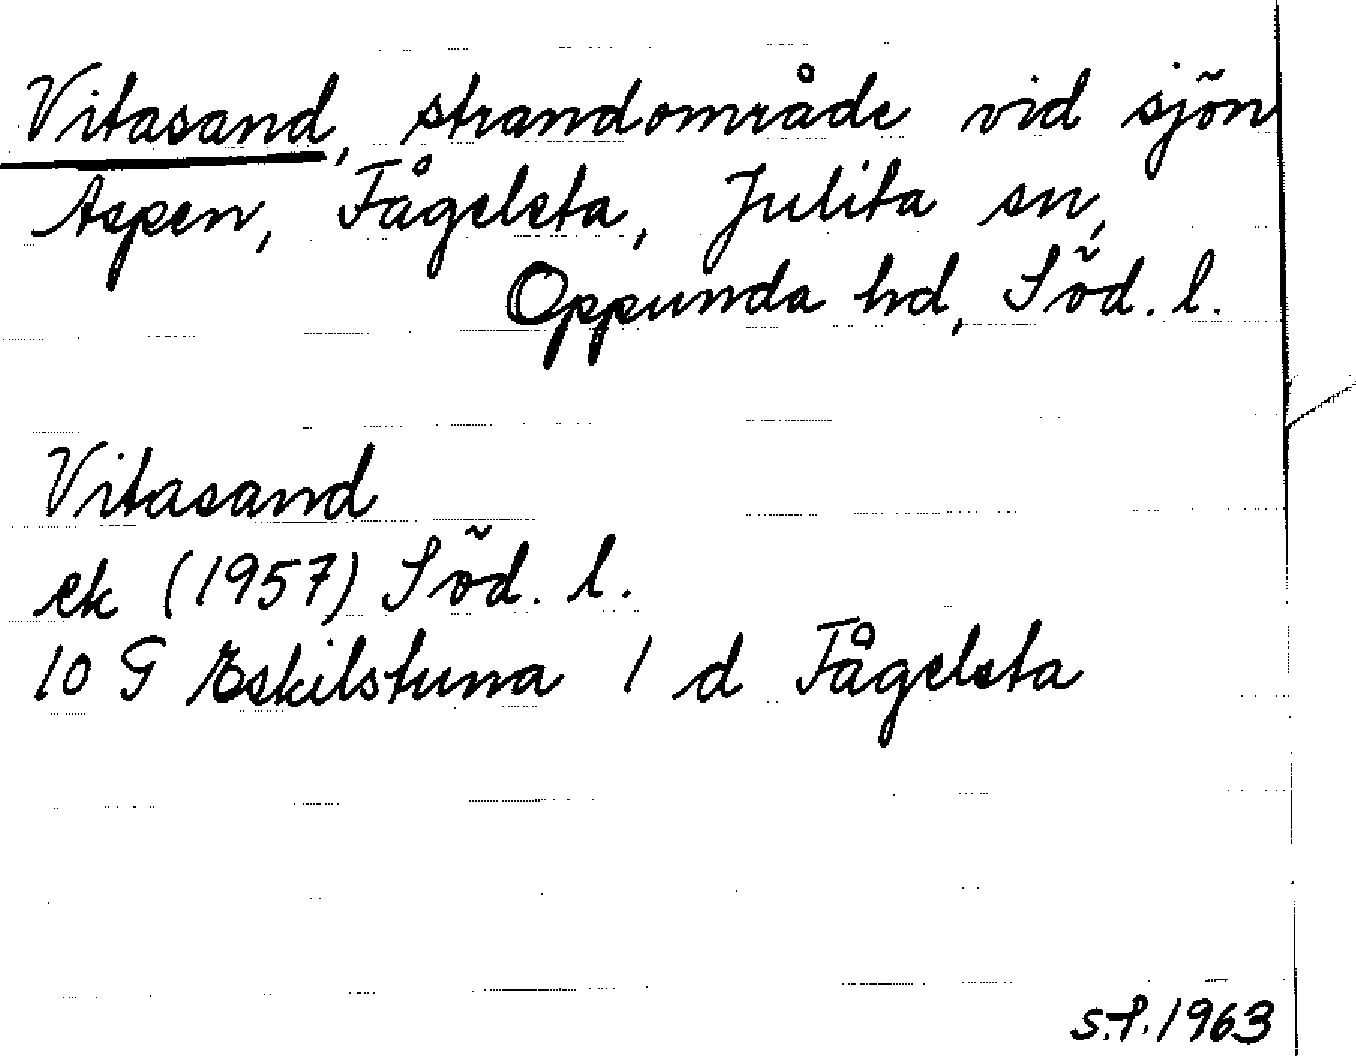 Vitasand, strandområde vid sjön
Aspen, Fågelsta, Julita sn,
Oppunda hd, Söd. l.
Vitasand
ek (1957) Söd. l.
10 G Eskilstuna 1 d Fågelsta
S.P. 1963